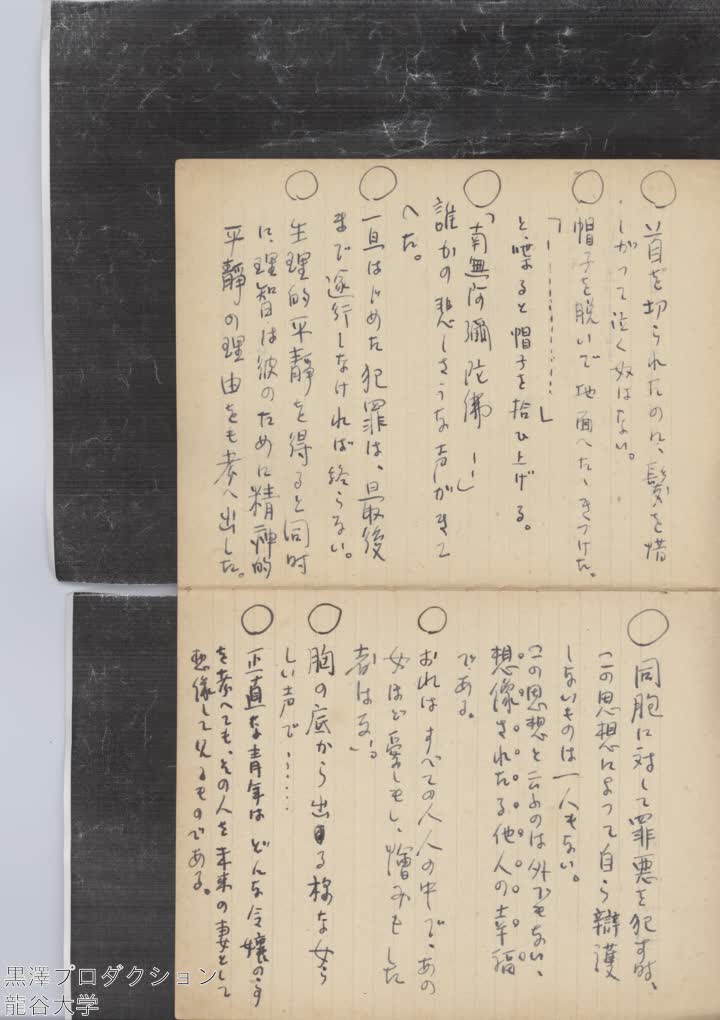 ○ 首を切られたのに、髪を惜
しがって泣く奴はない。
○ 帽子を脱いで地面へたゝきつけた。
「ー…………」
と、喋ると帽子を拾ひ上げる。
○ 「南無阿彌陀佛ー」
誰かの悲しさうな声がきこ
へた。
○ 一旦はじめた犯罪は、最後
まで遂行しなければ終らない。
○ 生理的平靜を得ると同时
に、理智は彼のために精神的
平靜の理由をも考へ出した。
○ 同胞に対して罪悪を犯す时、
この思想によって自ら辯護
しないものは一人もない。
この思想と云ふのは外でもない、
想像されたる他人の幸福
である。
○ おれはすべての人人の中で、あの
女ほど愛しもし、憎みもした
者はない。
○ 胸の底から出る様な女ら
しい声で……
○ 正直な青年はどんな令嬢のす
を考へても、その人を未来の妻として
想像して見るものである。
黒澤プロダクション
龍谷大学